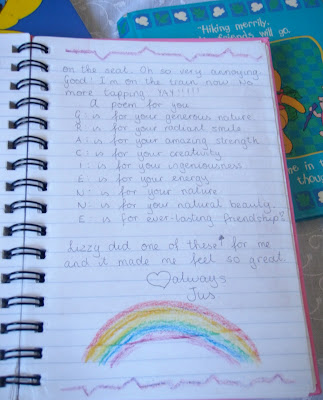 on the seat. Oh so very annoying.
Good! I'm on the train now. No
more tapping. YAY!!!!!
A poem for you
G: is for your generous nature
R: is for your radiant smile
A: is for your amazing strength
C: is for your creativity
I: is for your ingeniousness
E: is for your energy
N: is for your nature
N: is for your natural beauty
E: is for ever-lasting friendship
Lizzy did one of these for me
and it made me feel so great.
always
Jus
"Hiking merrily,
friends will go
me in
though